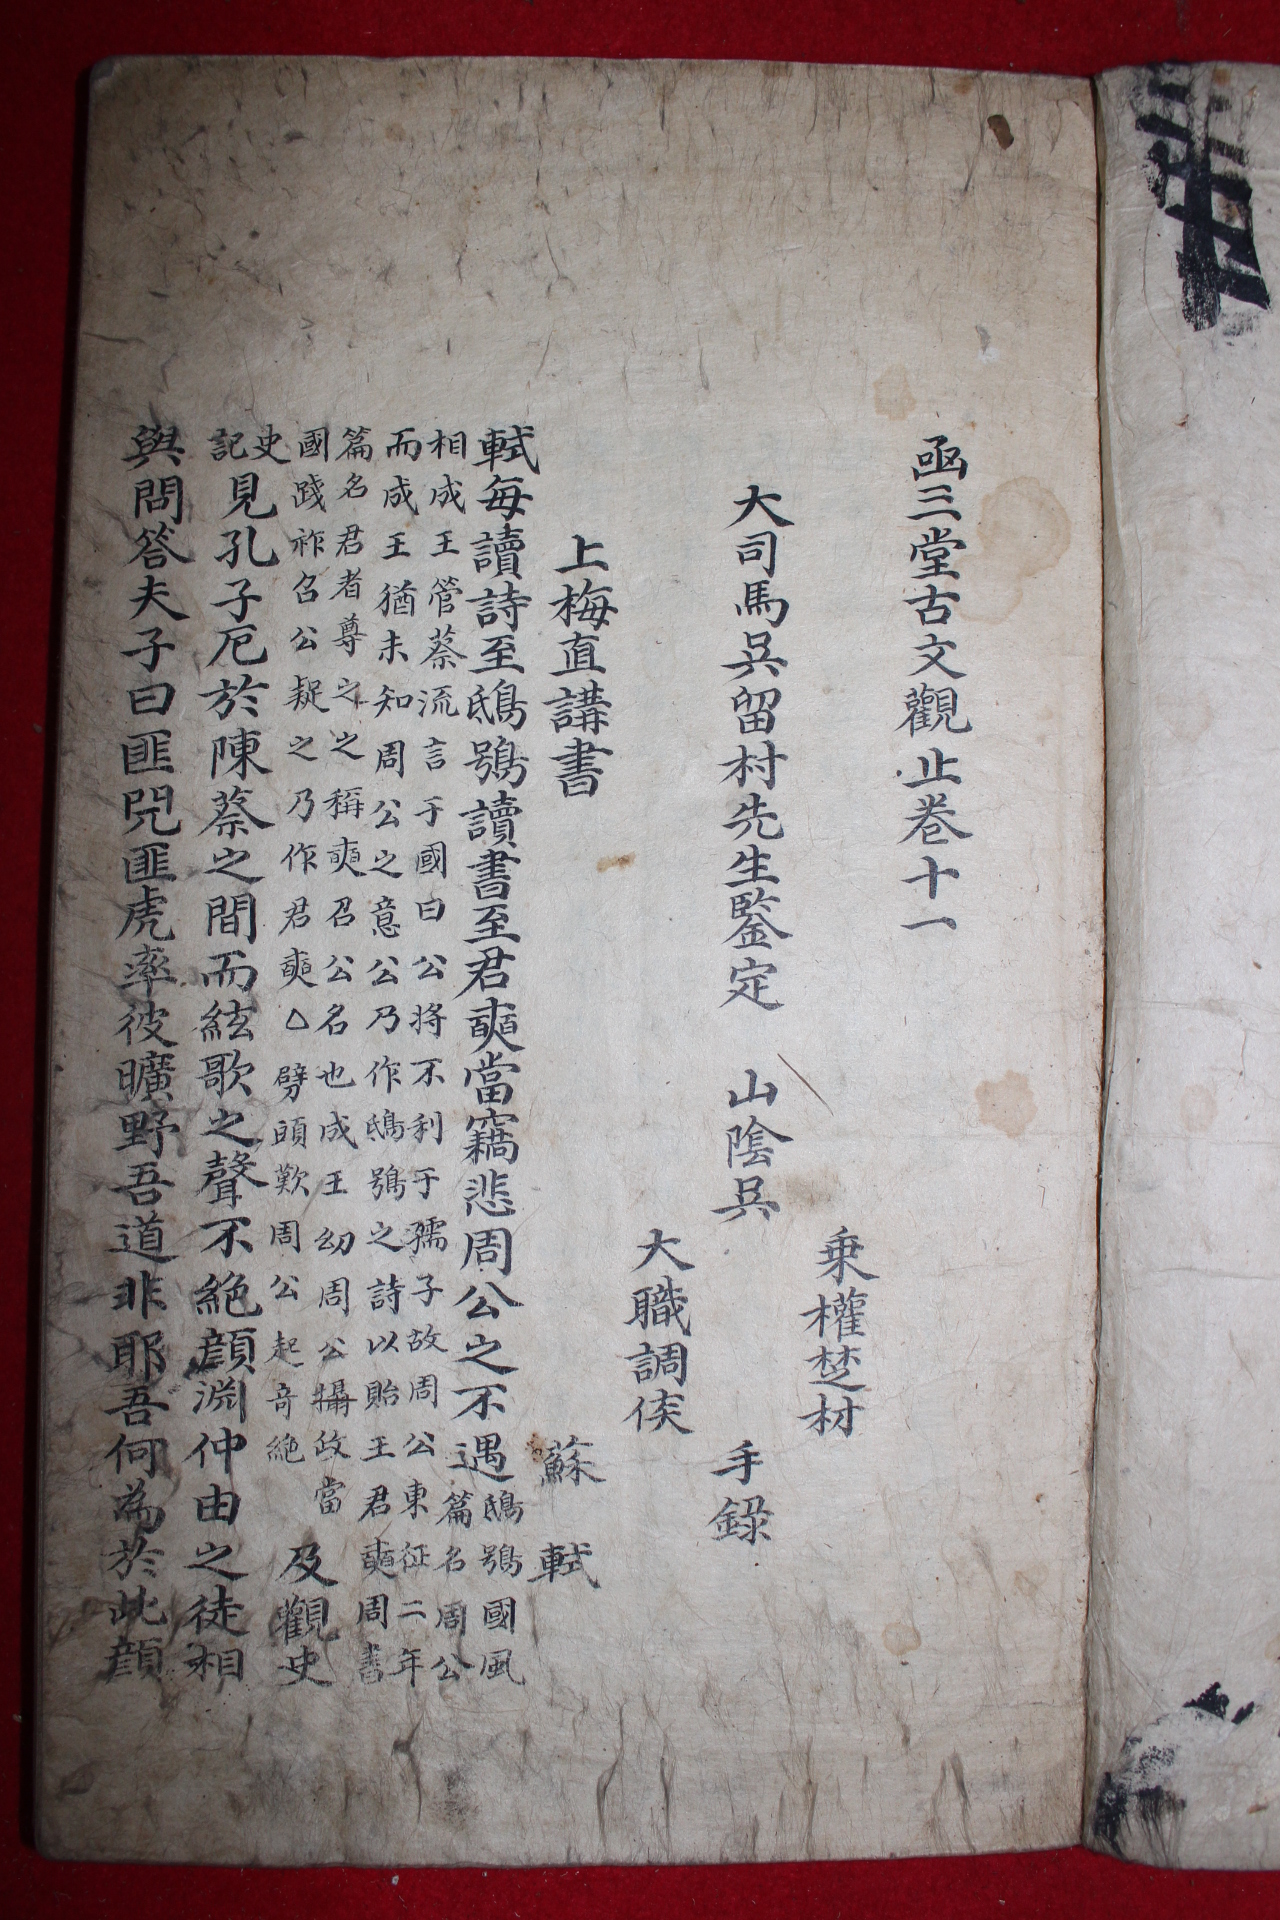 凾三堂古文觀止卷十一
乗權楚材
大司馬吳留村先生鑒定 山陰吳 手錄
大職調侯
上梅直講書 蘇軾
軾每讀詩至鴟鴞讀書至君奭當竊悲周公之不遇
鴟鴞國風
篇名周公
相成王管蔡流言于國曰公將不利于孺子故周公東征二年
而成王猶未知周公之意公乃作鴟鴞之詩以貽王君奭周書
篇名君者尊之之稱奭召公名也成王幼周公攝政當
國踐祚召公疑之乃作君奭△劈頭歎周公起奇絶
及觀史
史
記
見孔子厄於陳蔡之間而絃歌之聲不絶顔淵仲由之徒相
與問答夫子曰匪兕匪虎率彼曠野吾道非耶吾何為於此顔